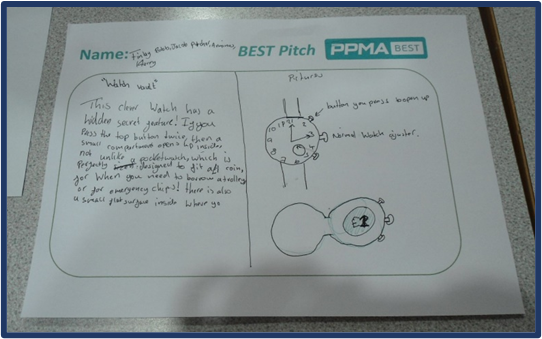 Name: BEST Pitch PPMA BEST
"Watch vault"
This clever Watch has a
hidden secret feature! If you
Pass the top button twice, then a
small compartment opens up inside,
not unlike a pocketwatch, which is
Perfectly designed to fit a £1 coin,
for When you need to borrow a trolley
or for emergency chips! there is also
a small flat surface inside where yo
Pictures
button you press to open up
Normal Watch
£1